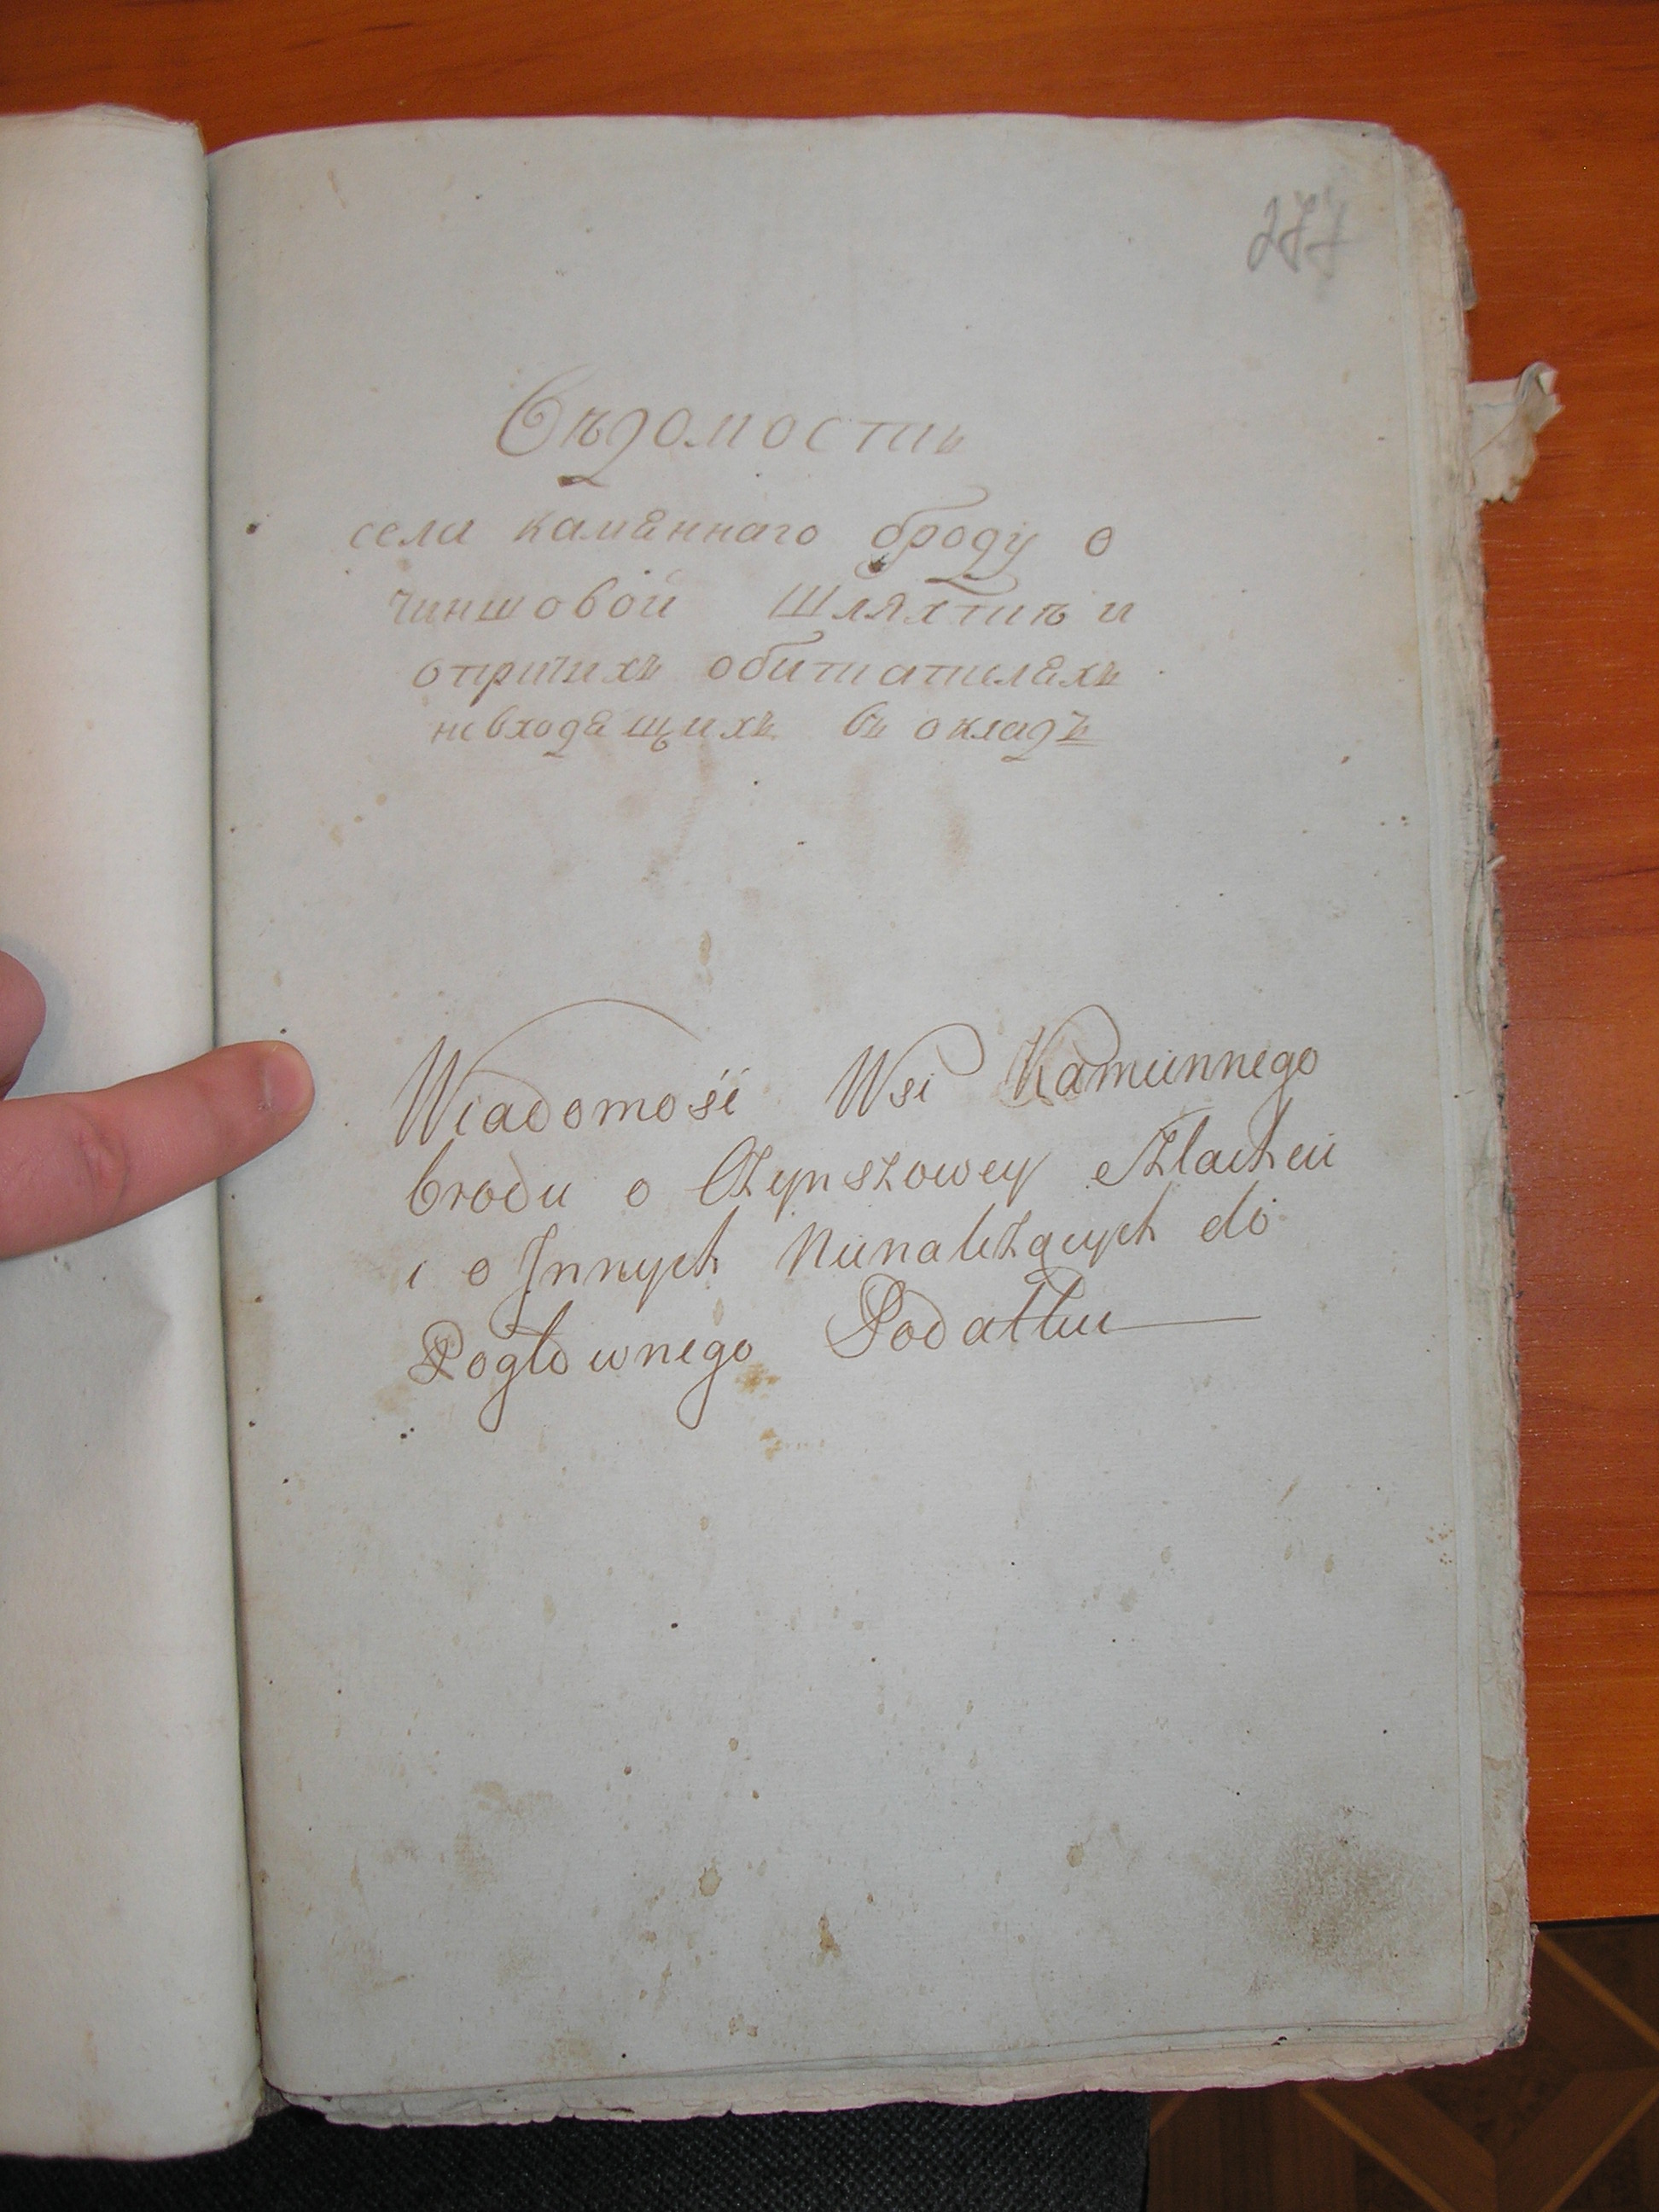 277
Вѣдомость
села камѣннаго броду о
чиншовой шляхтѣ и
о притихъ обитателѣхъ
невходѣщихъ въ окладъ
Wiadomość Wsi Kamiennego
brodu o Czynszowey Szlachcie
i o Innych Nienależących do
Pogłównego Podatku